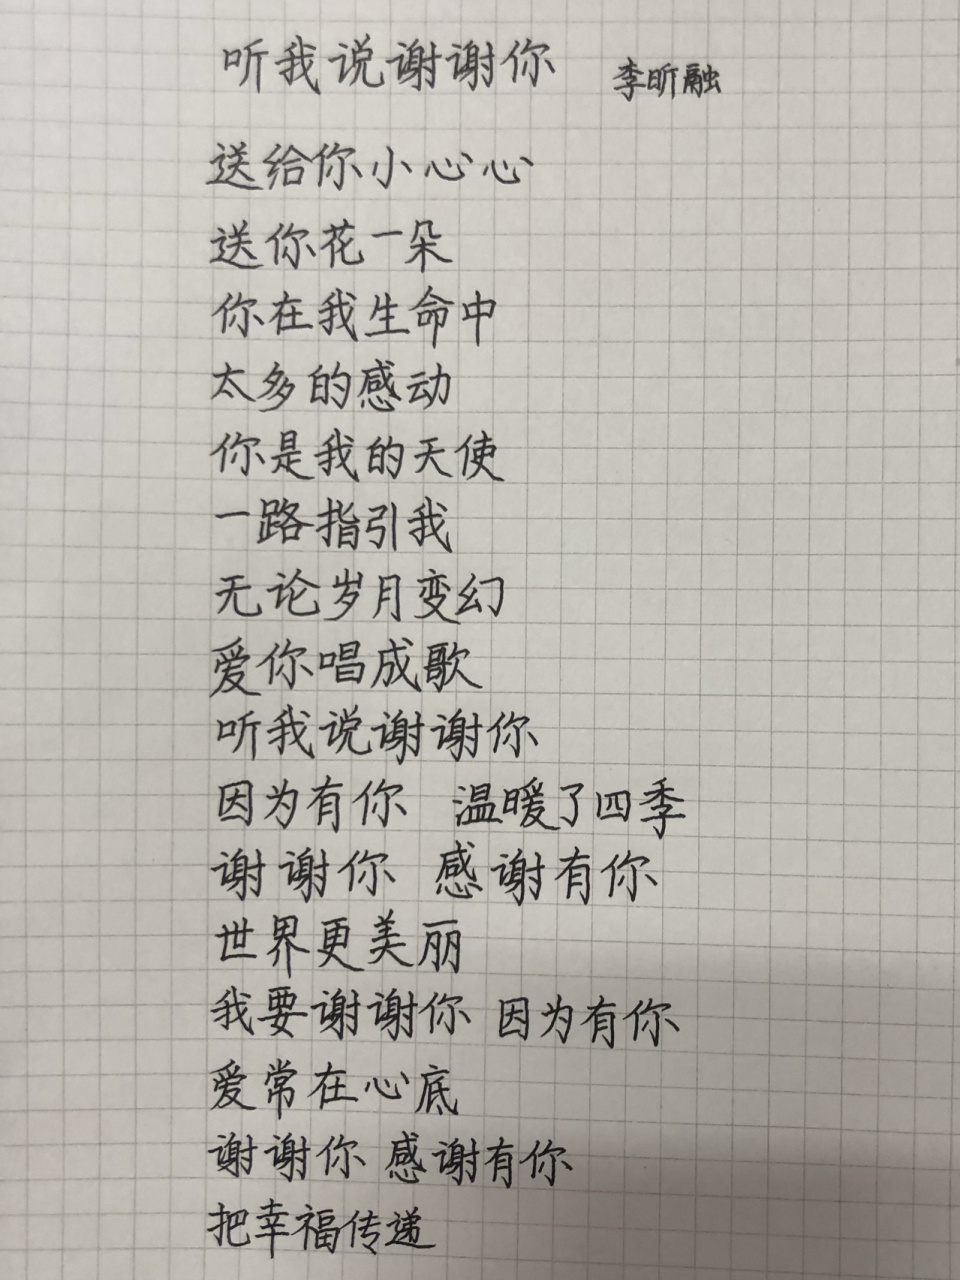 听我说谢谢你 李昕融
送给你小心心
送你花一朵
你在我生命中
太多的感动
你是我的天使
一路指引我
无论岁月变幻
爱你唱成歌
听我说谢谢你
因为有你 温暖了四季
谢谢你 感谢有你
世界更美丽
我要谢谢你 因为有你
爱常在心底
谢谢你 感谢有你
把幸福传递